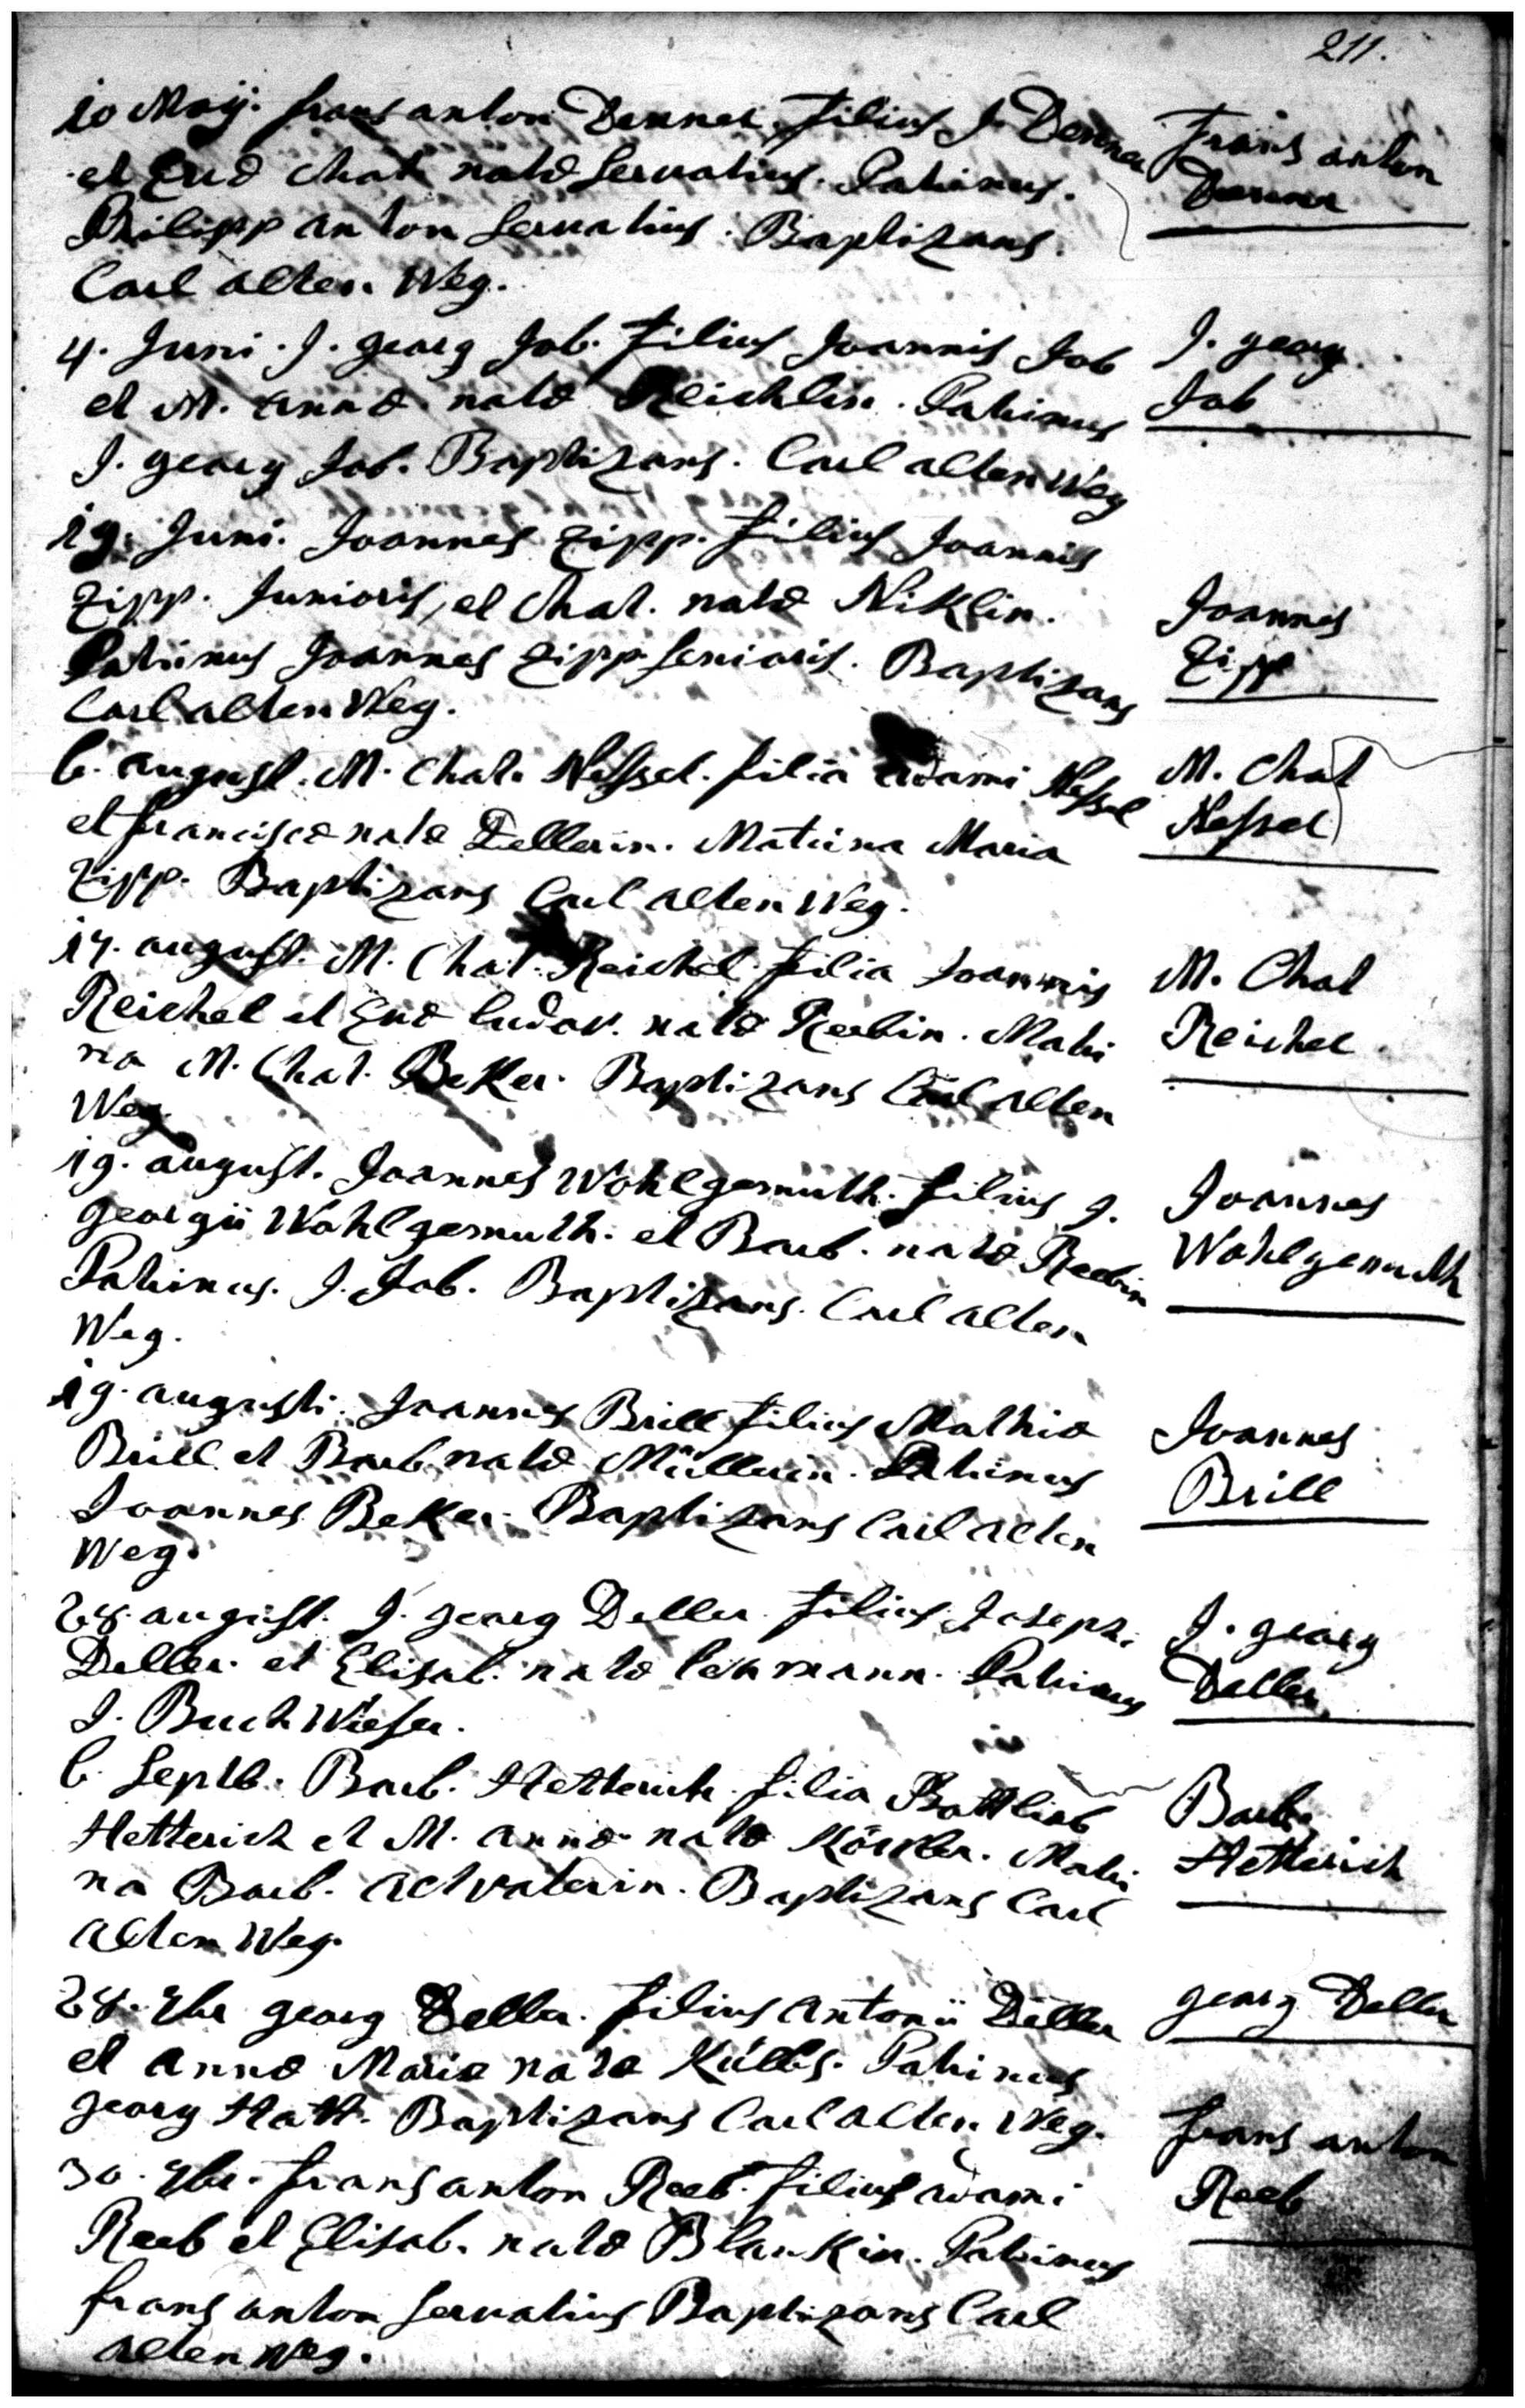 211.
10 Maÿ. frans anton Denner. filius J. Denner
et Evæ Chat. natæ Servatius. Patrinus.
Philipp anton Servatius. Baptizans.
Carl alten Weg.
Frans anton
Denner
4. Juni. J. georg Job. filius Joannis Job
et M. annæ natæ Reichlin. Patrinus
J. georg Job. Baptizans. Carl alten Weg
J. georg
Job
19. Juni. Joannes Zipp. filius Joannis
Zipp. Junioris, et Chat. natæ Niklin.
Patrinus Joannes Zipp Senioris. Baptizans
Carl alten Weg.
Joannes
Zipp
6. august. M. Chat. Nessel. filia adami Nessel
et franciscæ natæ Dellerin. Matrina Maria
Zipp. Baptizans Carl alten Weg.
M. Chat
Nessel
17. august. M. Chat. Reichel. filia Joannis
Reichel et Evæ ludov. natæ Reebin. Matri
na M. Chat. Beker. Baptizans Carl alten
Weg.
M. Chat
Reichel
19. august. Joannes Wohlgemuth. filius g.
georgii Wohlgemuth. et Barb. natæ Reebin
Patrinus. J. Job. Baptizans. Carl alten
Weg.
Joannes
Wohlgemuth
19. augusti. Joannes Brill filius Mathiæ
Brill et Barb natæ Müllerin. Patrinus
Joannes Beker. Baptizans Carl alten
Weg.
Joannes
Brill
28. august. J. georg Deller. filius Josephi
Deller. et Elisab. natæ lehmann. Patrinus
J. Buchwieser.
J. georg
Deller
6. Septb. Barb. Hetterich filia Gottlieb
Hetterich et M. annæ natæ. Matri
na Barb. Baptizans Carl
alten Weg.
Barb.
Hetterich
28. 9br georg Deller. filius antonii Deller
et annæ Mariæ natæ Külbs. Patrinus
georg Hatt. Baptizans Carl alten Weg.
georg Deller
30. 9br. frans anton Reeb. filius adami
Reeb et Elisab. natæ Blankin. Patrinus
frans anton Servatius Baptizans Carl
alten Weg.
frans anton
Reeb